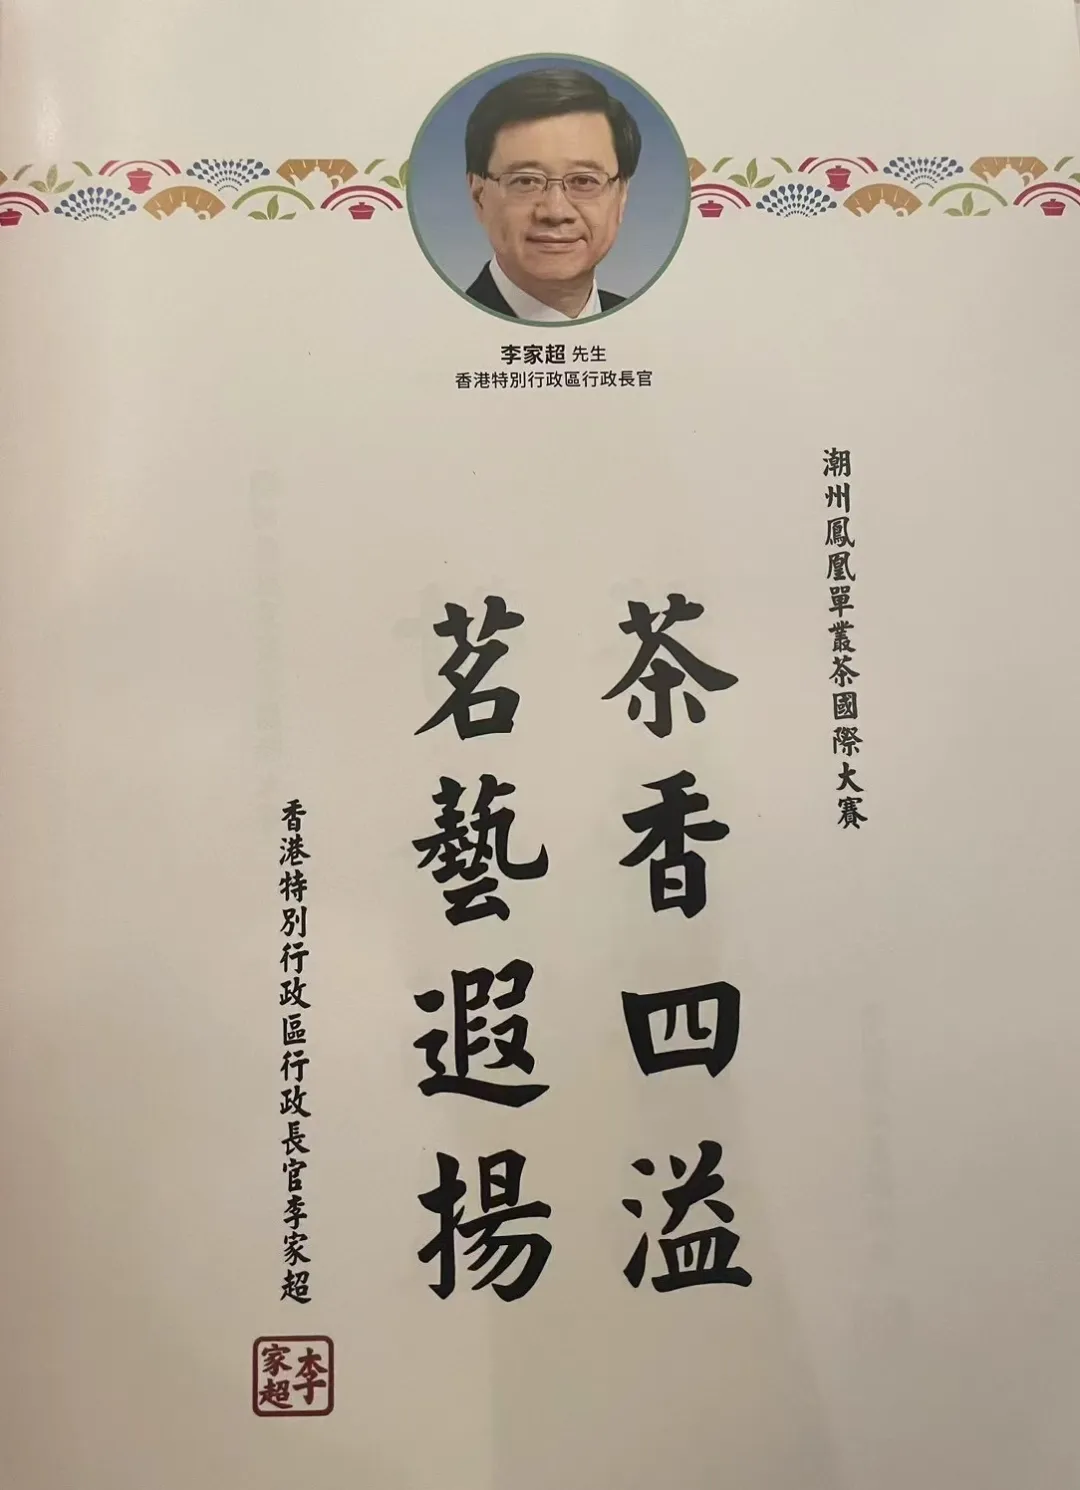 李家超 先生
香港特別行政區行政長官
潮州鳳凰單叢茶國際大賽
茶香四溢
茗藝遐揚
香港特別行政區行政長官李家超
李家超